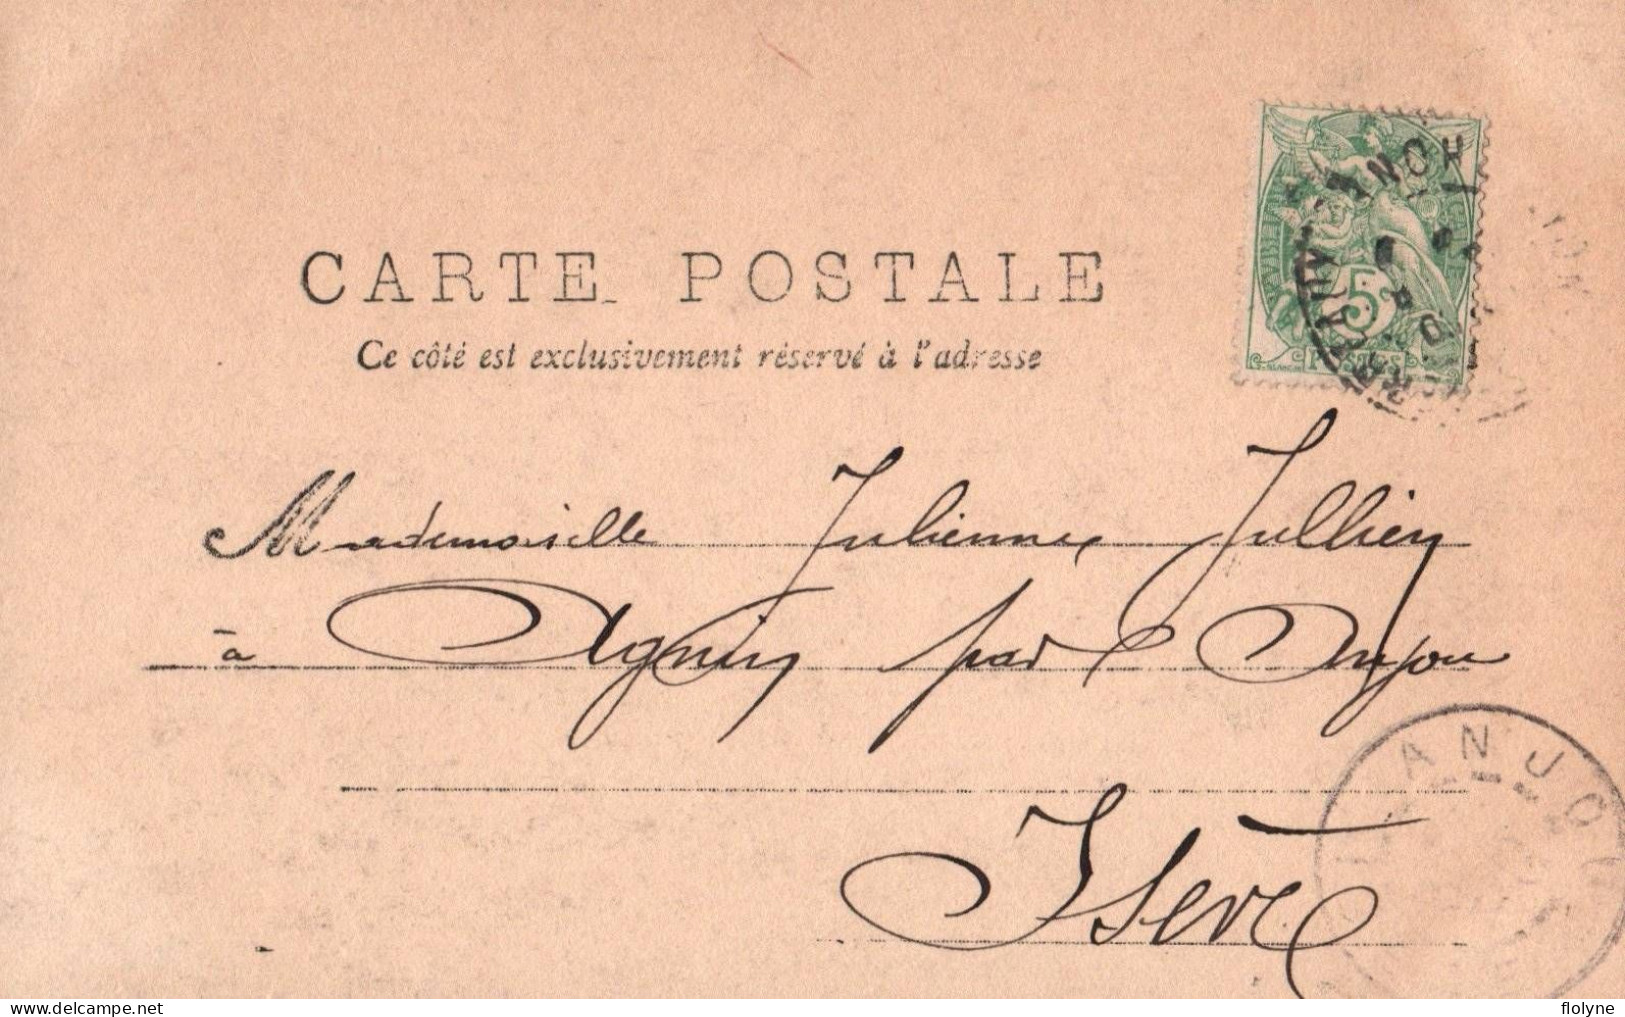 CARTE POSTALE
Ce côté est exclusivement réservé à l'adresse
5
POSTES
Mademoiselle Julienne Jullien
à Agnin par Anjou
Isère
ANJOU
flolyne